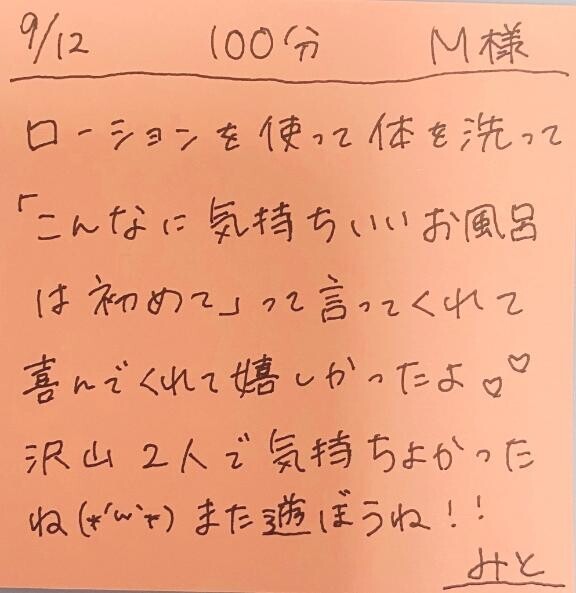 9/12 100分 M様
ローションを使って体を洗って
「こんなに気持ちいいお風呂
は初めて」って言ってくれて
喜んでくれて嬉しかったよ♡♡
沢山2人で気持ちよかった
ね(*´ω`*)また遊ぼうね!!
みと